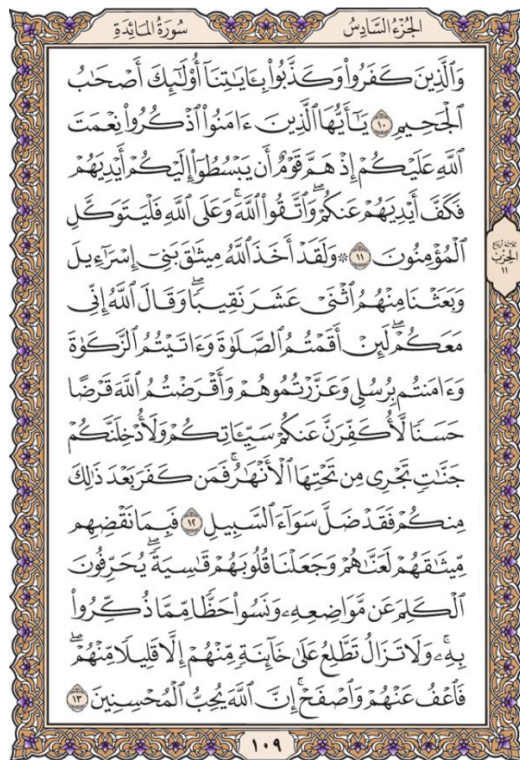 الجزء السادس
سورة المائدة
وَالَّذِينَ كَفَرُوا۟ وَكَذَّبُوا۟ بِـَٔايَـٰتِنَآ أُو۟لَـٰٓئِكَ أَصْحَـٰبُ
ٱلْجَحِيمِ ١٠ يَـٰٓأَيُّهَا ٱلَّذِينَ ءَامَنُوا۟ ٱذْكُرُوا۟ نِعْمَتَ
ٱللَّهِ عَلَيْكُمْ إِذْ هَمَّ قَوْمٌ أَن يَبْسُطُوٓا۟ إِلَيْكُمْ أَيْدِيَهُمْ
فَكَفَّ أَيْدِيَهُمْ عَنكُمْ ۖ وَٱتَّقُوا۟ ٱللَّهَ ۚ وَعَلَى ٱللَّهِ فَلْيَتَوَكَّلِ
ٱلْمُؤْمِنُونَ ١١ ۞ وَلَقَدْ أَخَذَ ٱللَّهُ مِيثَـٰقَ بَنِىٓ إِسْرَٰٓءِيلَ
وَبَعَثْنَا مِنْهُمُ ٱثْنَىْ عَشَرَ نَقِيبًا ۖ وَقَالَ ٱللَّهُ إِنِّى
مَعَكُمْ ۖ لَئِنْ أَقَمْتُمُ ٱلصَّلَوٰةَ وَءَاتَيْتُمُ ٱلزَّكَوٰةَ
وَءَامَنتُم بِرُسُلِى وَعَزَّرْتُمُوهُمْ وَأَقْرَضْتُمُ ٱللَّهَ قَرْضًا
حَسَنًا لَّأُكَفِّرَنَّ عَنكُمْ سَيِّـَٔاتِكُمْ وَلَأُدْخِلَنَّكُمْ
جَنَّـٰتٍ تَجْرِى مِن تَحْتِهَا ٱلْأَنْهَـٰرُ ۚ فَمَن كَفَرَ بَعْدَ ذَٰلِكَ
مِنكُمْ فَقَدْ ضَلَّ سَوَآءَ ٱلسَّبِيلِ ١٢ فَبِمَا نَقْضِهِم
مِّيثَـٰقَهُمْ لَعَنَّـٰهُمْ وَجَعَلْنَا قُلُوبَهُمْ قَـٰسِيَةً ۖ يُحَرِّفُونَ
ٱلْكَلِمَ عَن مَّوَاضِعِهِۦ ۙ وَنَسُوا۟ حَظًّا مِّمَّا ذُكِّرُوا۟
بِهِۦ ۚ وَلَا تَزَالُ تَطَّلِعُ عَلَىٰ خَآئِنَةٍ مِّنْهُمْ إِلَّا قَلِيلًا مِّنْهُمْ ۖ
فَٱعْفُ عَنْهُمْ وَٱصْفَحْ ۚ إِنَّ ٱللَّهَ يُحِبُّ ٱلْمُحْسِنِينَ ١٣
ثلاثة أرباع
الحزب
١١
١٠٩